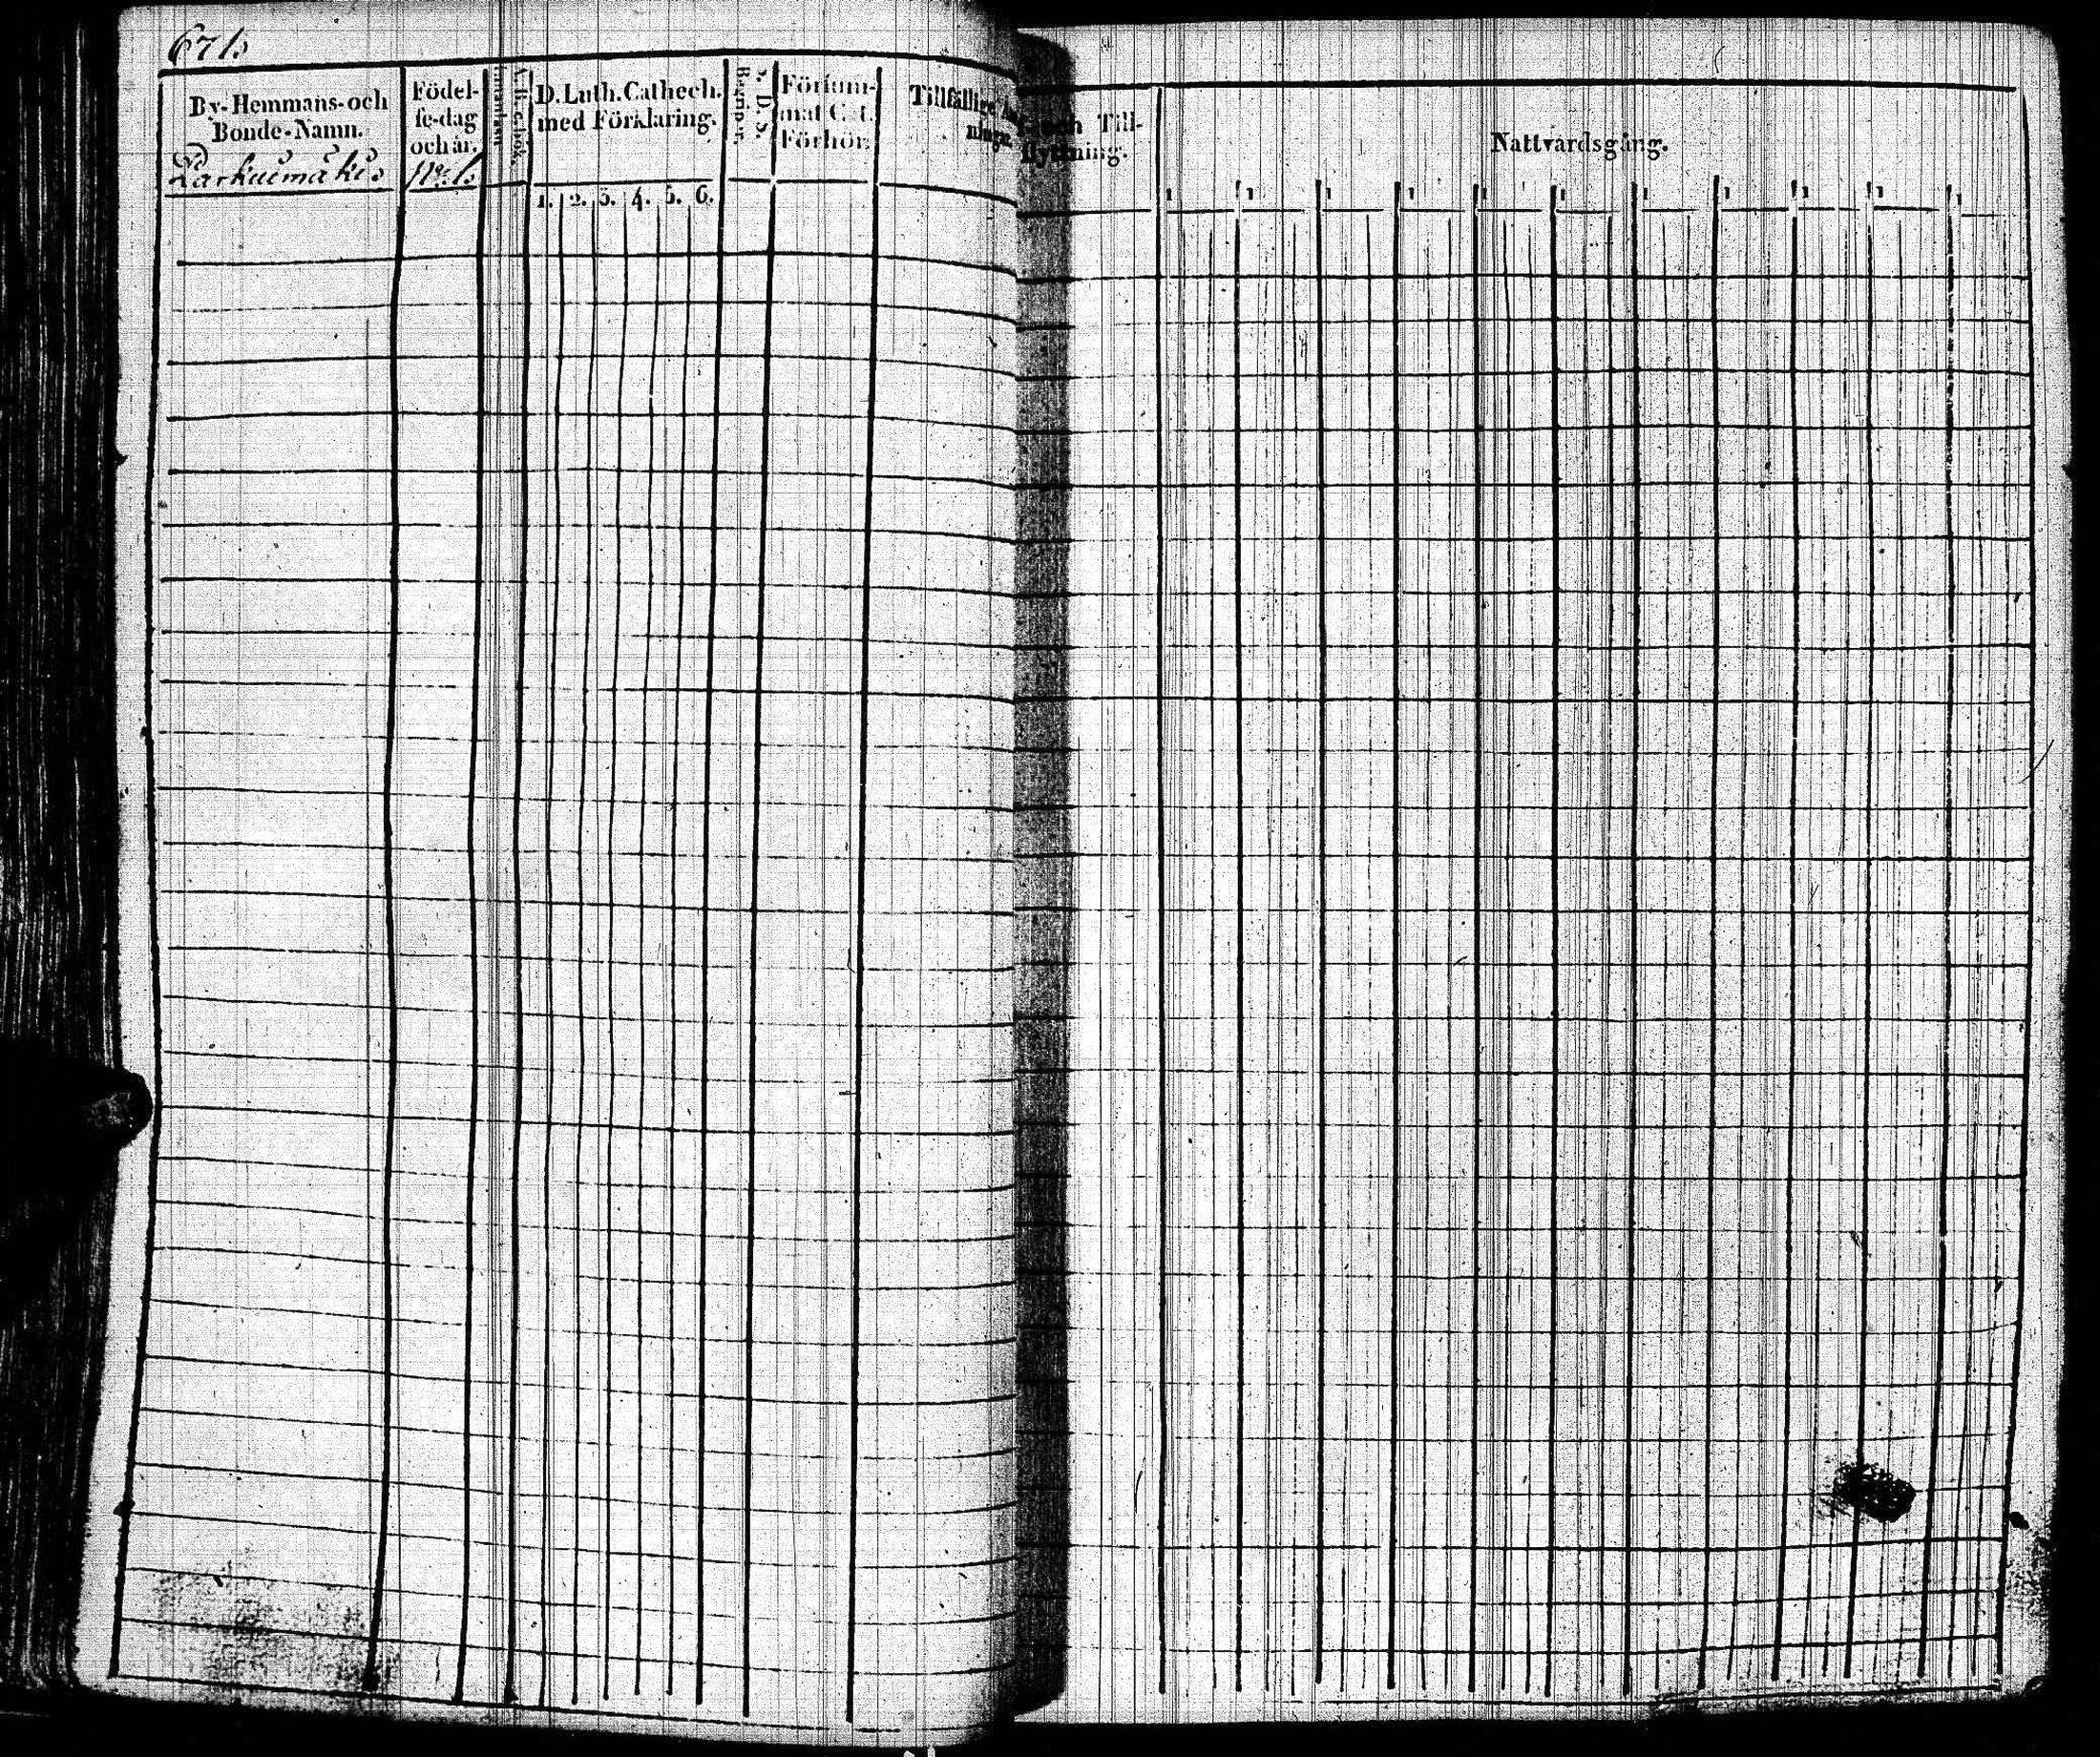 671.
By-Hemmans-och
Bonde-Namn.
Födel-
se-dag
och år.
Innanläsn.
A.B.C.bok.
D. Luth. Cathech.
med Förklaring.
Begrip.
Försum-
mat Cat.
Förhör.
Tillfällige
och Till-
flyttning.
Nattvardsgång.
Larkuimäki No 1.
1. 2. 3. 4. 5. 6.
1 1 1 1 1 1 1 1 1 1 1